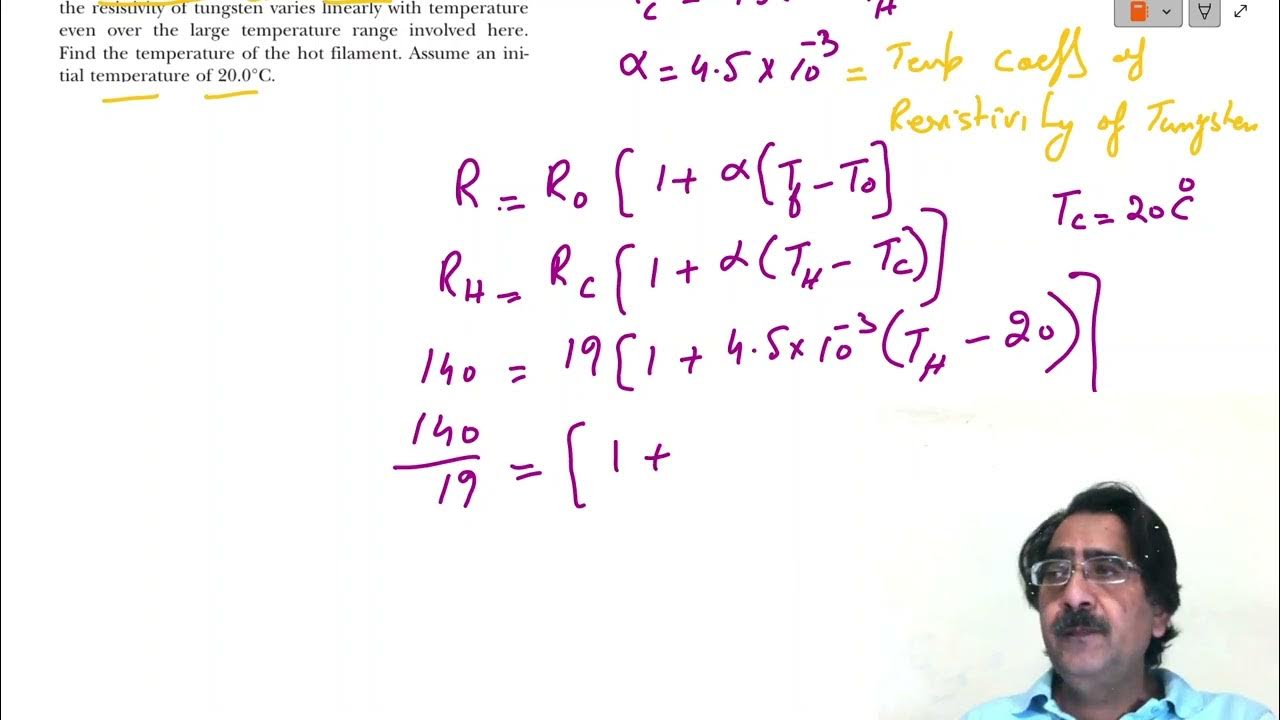 the resistivity of tungsten varies linearly with temperature
even over the large temperature range involved here.
Find the temperature of the hot filament. Assume an ini-
tial temperature of 20.0°C.
α = 4.5 × 10⁻³ = Temp coeff of
Resistivity of Tungsten
R = R₀ [ 1 + α (T_f − T₀ ]
T_C = 20 °C
R_H = R_C [ 1 + α ( T_H − T_C ) ]
140 = 19 [ 1 + 4.5 × 10⁻³ ( T_H − 20 ) ]
140
19 = [ 1 +